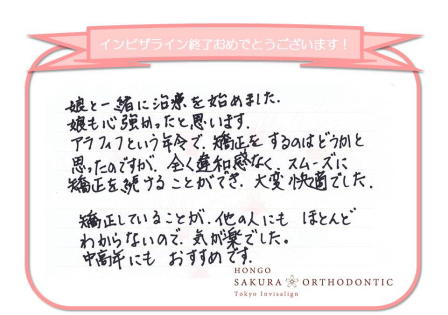 インビザライン終了おめでとうございます！
娘と一緒に治療を始めました。
娘も心強かったと思います。
アラフィフという年令で、矯正をするのはどうかと
思ったのですが、全く違和感なく、スムーズに
矯正を続けることができ、大変快適でした。
矯正していることが、他の人にも ほとんど
わからないので、気が楽でした。
中高年にも おすすめです。
HONGO
SAKURA ORTHODONTIC
Tokyo Invisalign